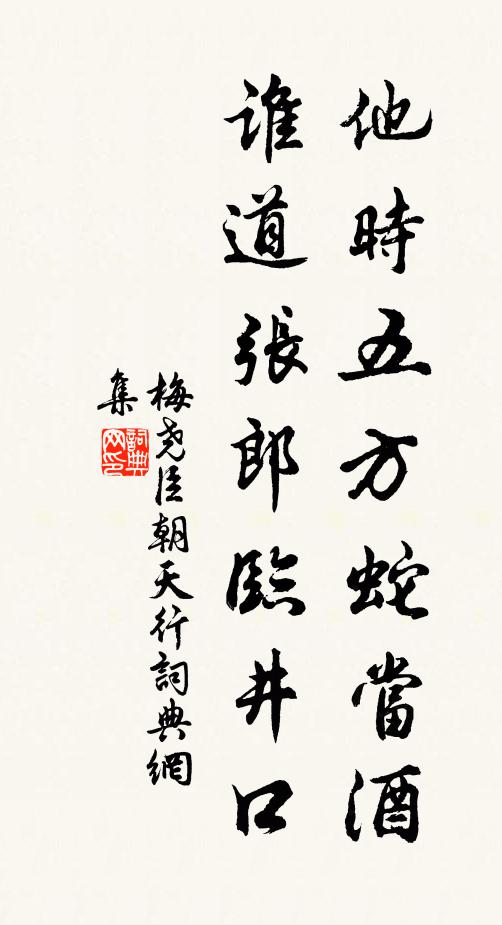 他時五方蛇當酒
誰道張郎臨井口
梅堯臣朝天行詞典網
集
詞典网印